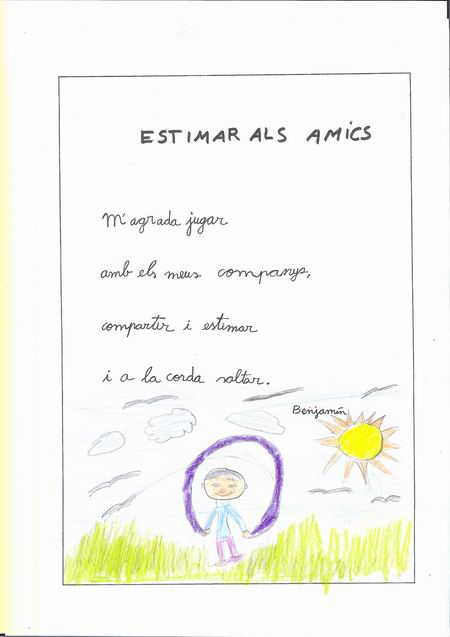 ESTIMAR ALS AMICS
M'agrada jugar
amb els meus companys,
compartir i estimar
i a la corda saltar.
Benjamín